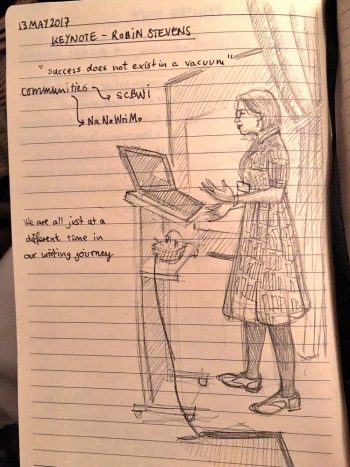 13 MAY 2017
KEYNOTE - ROBIN STEVENS
"success does not exist in a vacuum"
communities
SCBWI
NaNoWriMo
We are all just at a
different time in
our writing journey